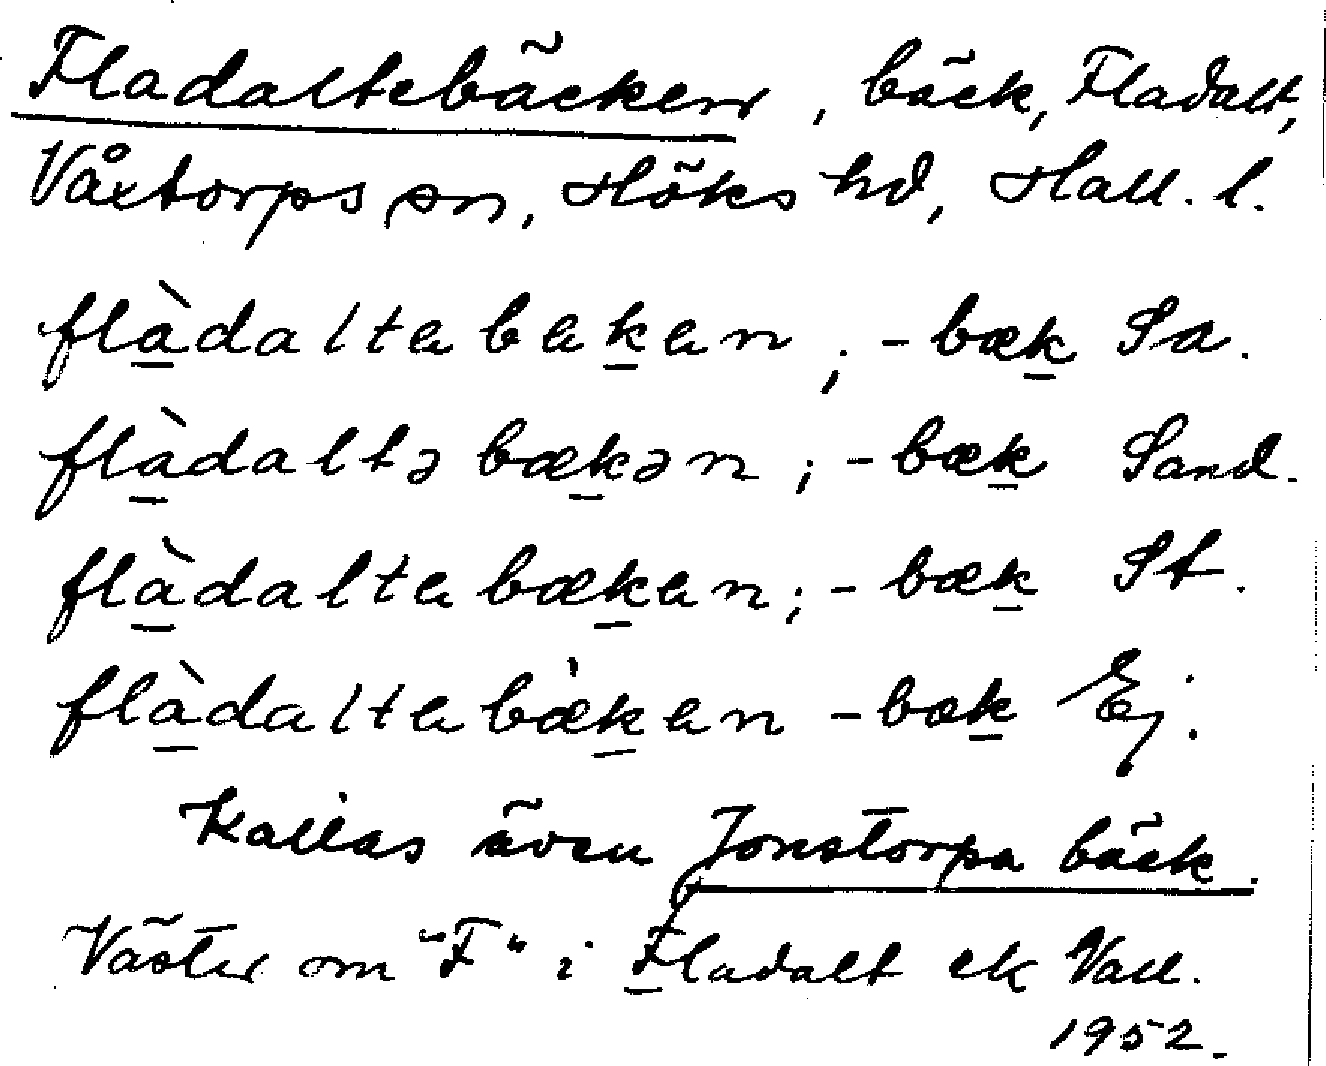 Fladaltebäcken, bäck, Fladalt,
Våxtorps sn, Höks hd, Hall. l.
flàdaltebekен; -bæk Sa.
flàdaltəbækən; -bæk Sand.
flàdaltabækan; -bæk St.
flàdaltabækan -bæk Ej.
Kallas även Jonstorpa bäck.
Väster om "F" i Fladalt ek Vall.
1952.